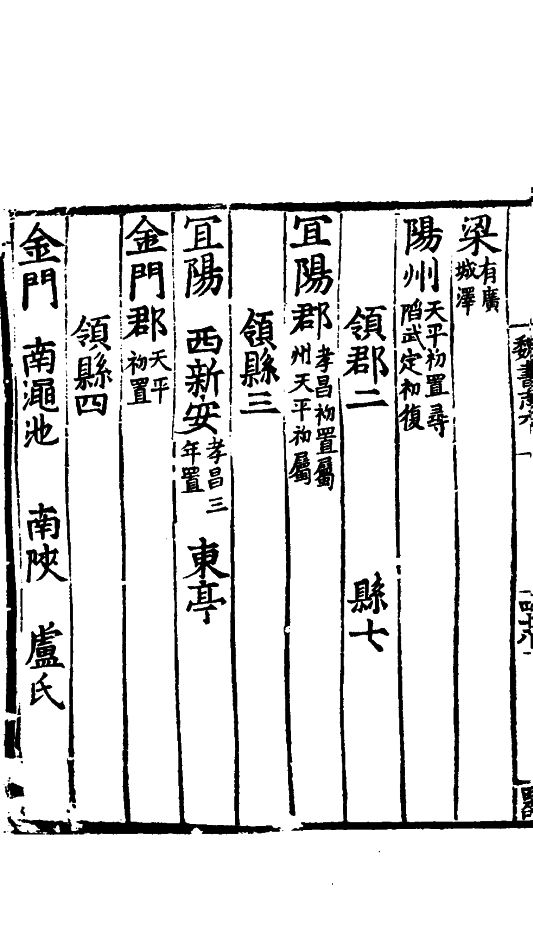 魏書志
梁有廣城澤
陽州天平初置尋陷武定初復
領郡二　縣七
冝陽郡孝昌初置屬州天平初屬
領縣三
冝陽　西新安孝昌三年置　東亭
金門郡天平初置
領縣四
金門　南澠池　南陝　盧氏